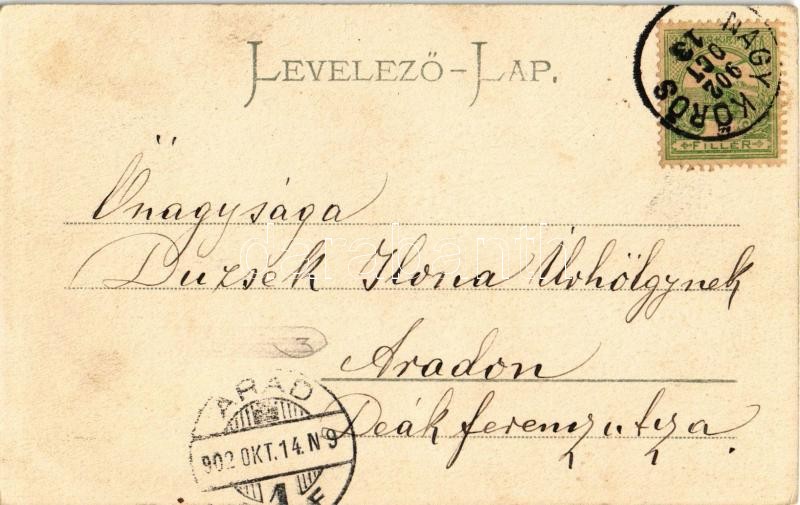 LEVELEZŐ-LAP.
NAGY KŐRÖS
902
OCT
13
FILLÉR
Őnagysága
Duzsek Ilona Úrhölgynek
3
Aradon
Deák ferencz utza
ARAD
902 OKT.14.N9
1